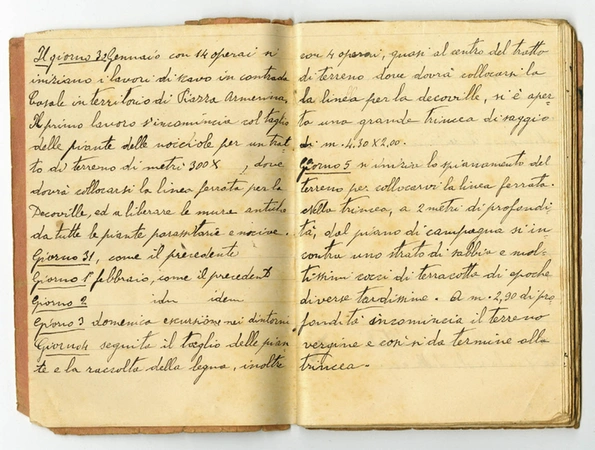 Il giorno 30 Gennaio con 14 operai si
iniziano i lavori di scavo in contrada
Casale in territorio di Piazza Armerina.
Il primo lavoro s'incomincia col taglio
delle piante delle nocciole per un trat
to di terreno di metri 300 X , dove
dovrà collocarsi la linea ferrata per la
Decoville, ed a liberare le mura antiche
da tutte le piante parassitarie e nocive.
Giorno 31, come il precedente
Giorno 1° febbraio, come il precedente
Giorno 2 idm idem
Giorno 3 domenica escursione nei dintorni
Giorno 4 seguita il taglio delle pian
te e la raccolta della legna, inoltre
con 4 operai, quasi al centro del tratto
di terreno dove dovrà collocarsi la
la linea per la decoville, si è aper
ta una grande trincea di saggio
di m. 4.30 X 2,00.
Giorno 5 si inizia lo spianamento del
terreno per collocarvi la linea ferrata.
Nella trincea, a 2 metri di profondi
tà, dal piano di campagna si in
contra uno strato di sabbia e mol-
tissimi cocci di terracotta di epoche
diverse tardissime. A m. 2,90 di pro
fondità incomincia il terreno
vergine e così si da termine alla
trincea.